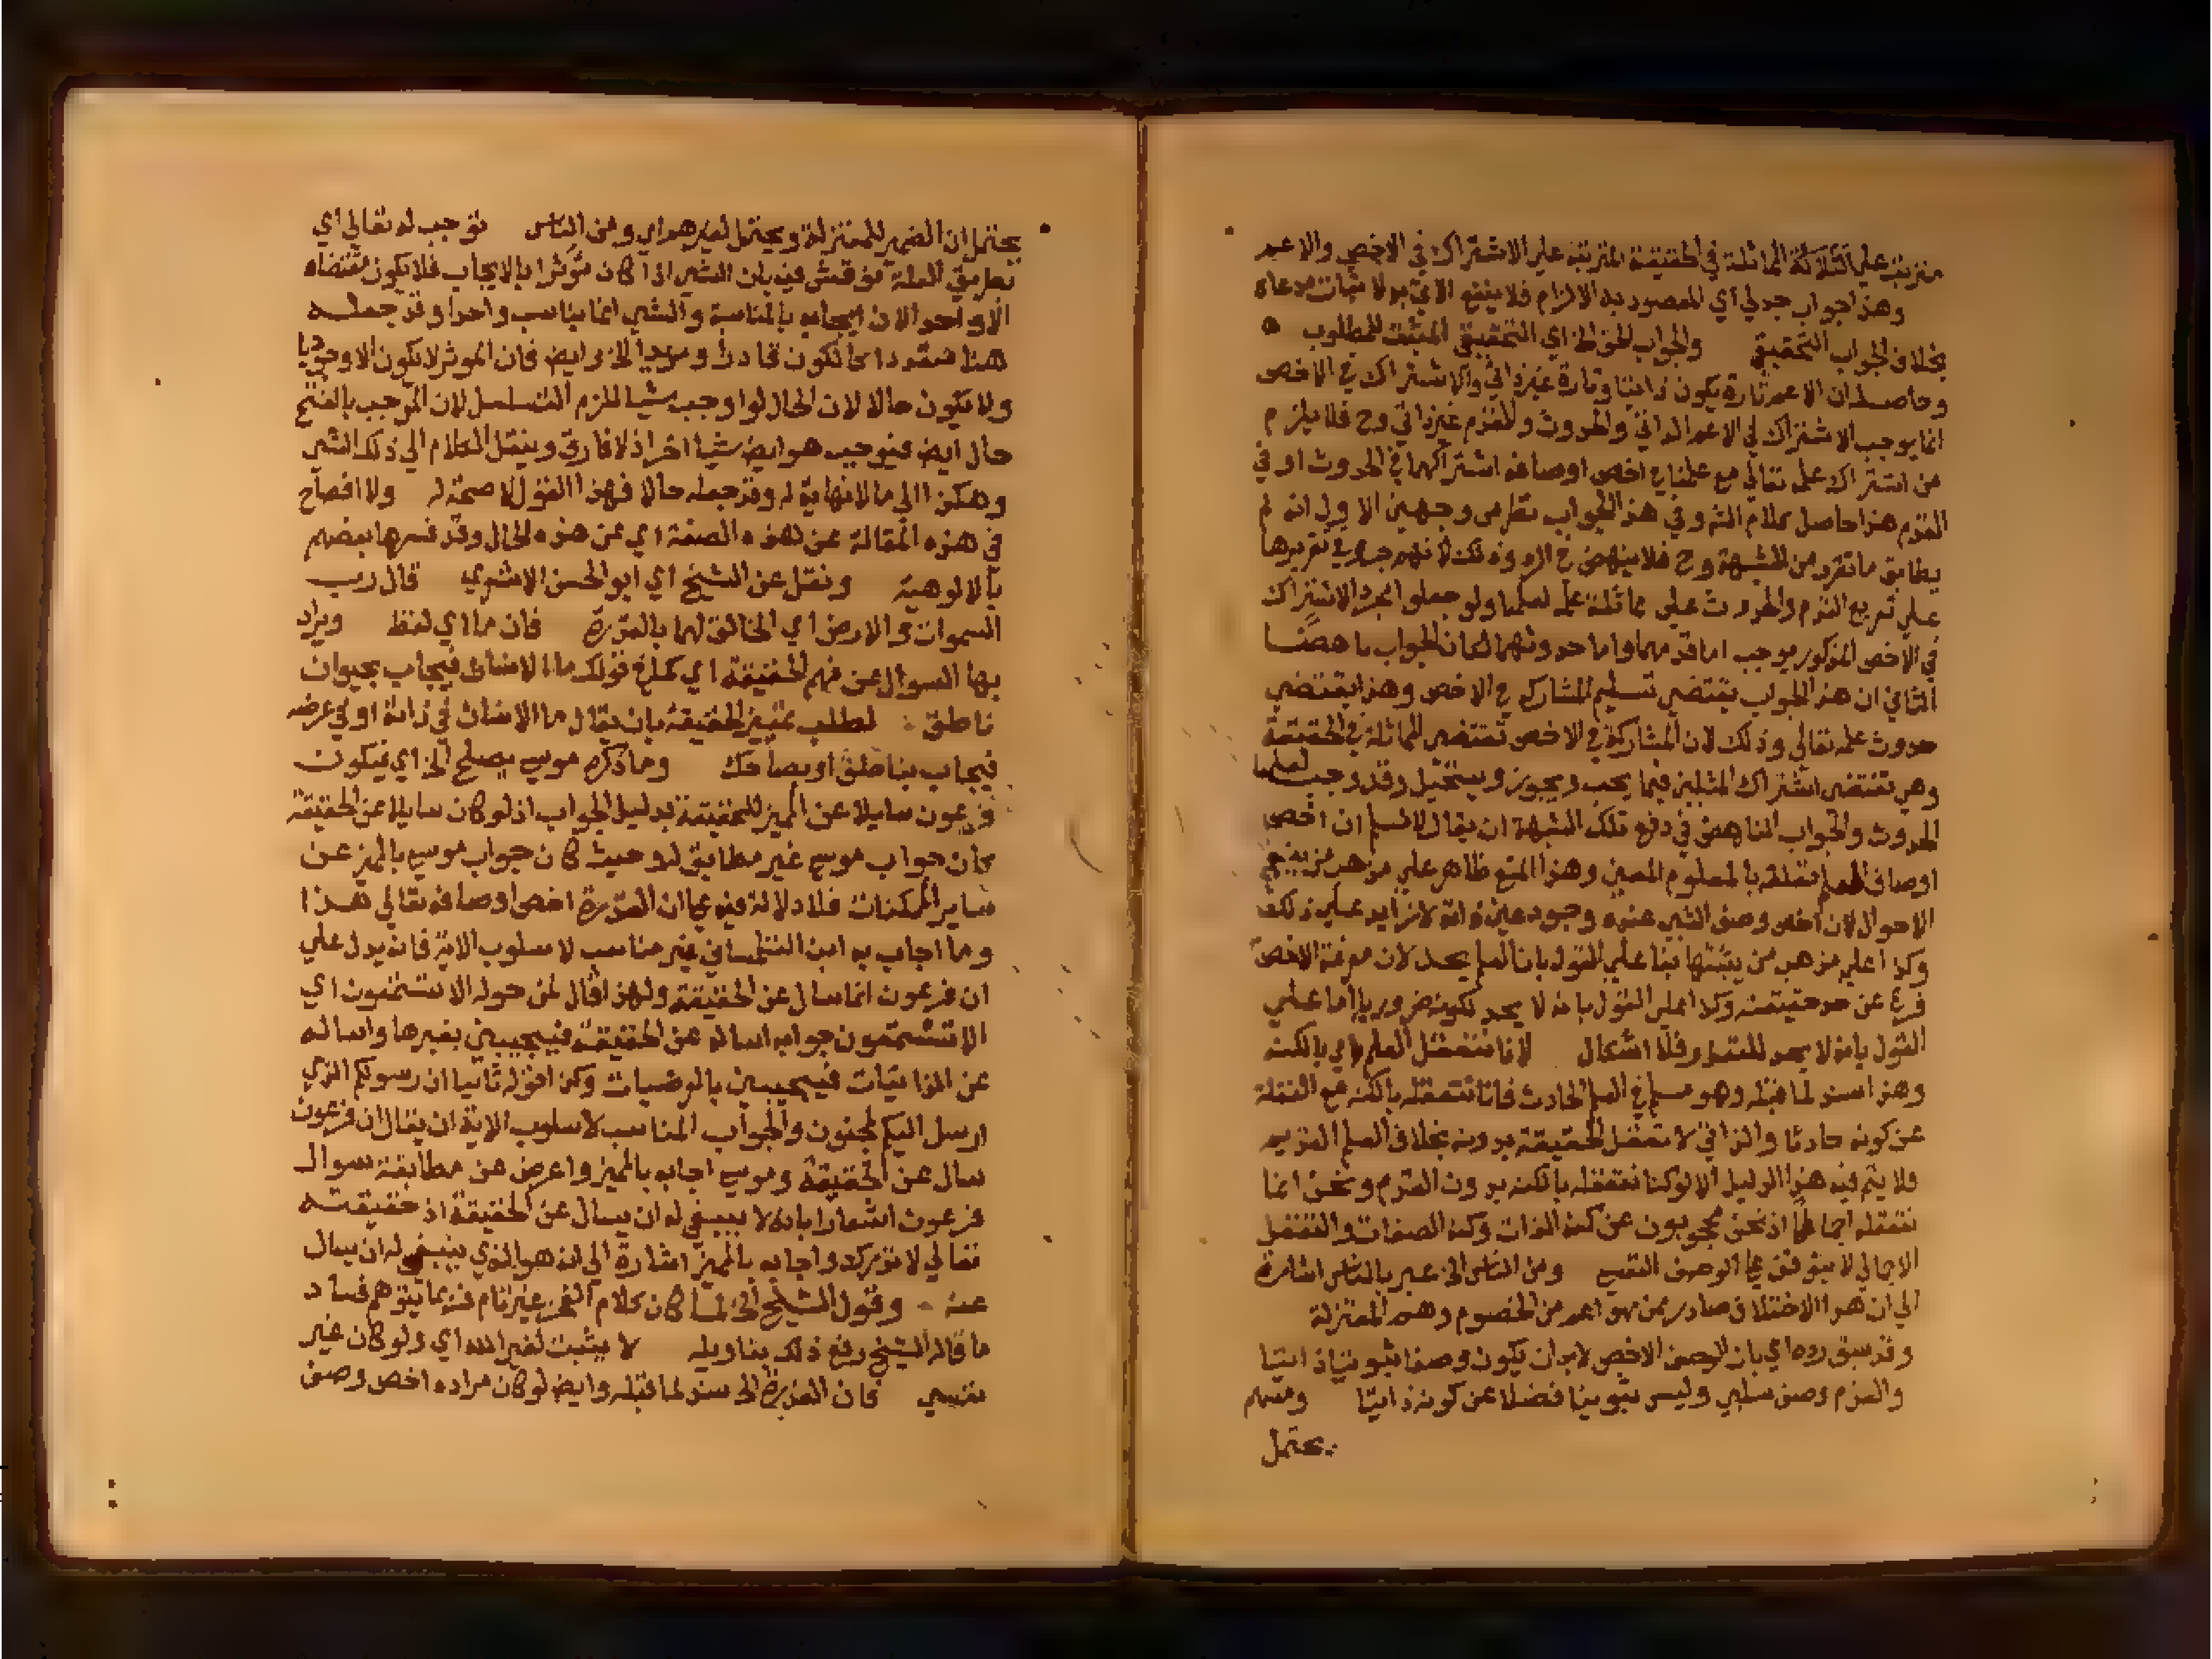 مترتب على الثلاثة المماثلة في الحقيقة المترتبة على الاشتراك في الاخص والاعم
وهذا جواب جدلي اي المقصود به الالزام فلا ينتج الاتي به لاثبات مدعاه
بخلاف الجواب التحقيقي والجواب الخ اي التحقيقي المثبت للمطلوب
وحاصله ان الاعم تارة يكون ذاتيا وتارة غير ذاتي والاشتراك في الاخص
انما يوجب الاشتراك في الاعم الذاتي والحدوث والقدم غير ذاتي وح فلا يلزم
من اشتراك علمه تعالى مع علمنا في اخص اوصافه اشتراكهما في الحدوث او في
القدم هذا حاصل كلام الشه وفي هذا الجواب نظر من وجهين الاول انه لم
يطابق ما تقرر من الشبهة وح فلا ينهض في الرد وذلك لانهم في تقريرها
على تفريع القدم والحدوث على مماثلة علمه لعلمنا ولو جعلوا مجرد الاشتراك
في الاخص المذكور يوجب اما قدمهما واما حدوثهما لكان الجواب ناهضا
الثاني ان هذا الجواب يقتضي تسليم المشاركة في الاخص وهذا يقتضي
حدوث علمه تعالى وذلك لان المشاركة في الاخص تقتضي المماثلة في الحقيقة
وهي تقتضي اشتراك المثلين فيما يجب ويجوز ويستحيل وقد وجب لعلمنا
الحدوث والجواب الناهض في دفع تلك الشبهة ان يقال لا نسلم ان اخص
اوصاف العلم تعلقه بالمعلوم المعين وهذا المنع ظاهر على مذهب من ينفي
الاحوال لان اخص وصف الشي عنده وجود عين ذاته لا زايد على ذلك
وكذا على مذهب من يثبتها بنا على القول بان العلم يحد لان معرفة الاخص
فرع عن حد حقيقته وكذا على القول بانه لا يحد لكونه ضروريا اما على
القول بانه لا يحد للعسر فلا اشكال لانا نتعقل العلم اي بالكنه
وهذا سند لما قبله وهو مسلم في العلم الحادث فانا نتعقله بالكنه مع الغفلة
عن كونه حادثا والذاتي لا تعقل الحقيقة بدونه بخلاف العلم القديم
فلا يتم فيه هذا الدليل الا لو كنا نتعقله بالكنه بدون القدم ونحن انما
نتعقله اجمالا اذ نحن محجوبون عن كنه الذات وكنه الصفات والتعقل
الاجمالي لا يتوقف على الوصف النفسي ومن الناس الخ عبر بالناس اشارة
الي ان هذا الاختلاف صادر ممن هو اعم من الخصوم وهم المعتزلة
وقد سبق رده اي بان الوصف الاخص لا بد ان يكون وصفا ثبوتيا ذاتيا
والقدم وصف سلبي وليس ثبوتيا فضلا عن كونه ذاتيا ومنهم
يحتمل
يحتمل ان الضمير للمعتزلة ويحتمل لغيرهم اي ومن الناس توجب له تعالي اي
بطريق العلة نوقش فيه بان الشي اذا كان موثرا بالايجاب فلا يكون مقتضاه
الا واحد الان ايجابه بالمناسبة والشي انما يناسب واحدا وقد جعله
هنا متعددا ككون قادرا ومريدا الخ وايض فان الموثر لا يكون الا وجوديا
ولا يكون حالا لان الحال لو اوجب شيا للزم التسلسل لان الموجب بالفتح
حال ايض فيوجب هو ايض شيا اخر اذ لا فارق وينقل الكلام الي ذلك الشي
وهكذا الى ما لا نهاية له وقد جعله حالا فهذا القول لا صحة له ولا افصاح
في هذه المقالة عن هذه الصفة اي عن هذه الحال وقد فسرها بعضهم
بالالوهية ونقل عن الشيخ اي ابو الحسن الاشعري قال رب
السموات والارض اي الخالق لهما بالقدرة فان ما اي لفظ ويراد
بها السوال عن فهم الحقيقة اي كما في قولك ما الانسان فيجاب بحيوان
ناطق لطلب تمييز الحقيقة بان يقال ما الانسان في ذاته او في عرضه
فيجاب بناطق او بضاحك وما ذكره موسى يصلح الخ اي فيكون
فرعون سايلا عن المميز للحقيقة بدليل الجواب اذ لو كان سايلا عن الحقيقة
لكان جواب موسى غير مطابق له وحيث كان جواب موسى بالمميز عن
ساير الممكنات فلا دلالة فيه على ان القدرة اخص اوصافه تعالي هذا
وما اجاب به ابن التلمساني غير مناسب لاسلوب الاية فانه يدل علي
ان فرعون انما سال عن الحقيقة ولهذا قال لمن حوله الا تستمعون اي
الا تستمعون جوابه اساله عن الحقيقة فيجيبني بغيرها واساله
عن الذاتيات فيجيبني بالعرضيات وكذا قوله ثانيا ان رسولكم الذي
ارسل اليكم لمجنون والجواب المناسب لاسلوب الاية ان يقال ان فرعون
سال عن الحقيقة وموسى اجاب بالمميز واعرض عن مطابقة سوال
فرعون اشعارا بانه لا ينبغي له ان يسال عن الحقيقة اذ حقيقته
تعالي لا تدرك واجابه بالمميز اشارة الى انه هو الذي ينبغي له ان يسال
عنه وقول الشيخ الخ لما كان كلام الفخر غير تام فربما يتوهم فساد
ما قاله الشيخ دفع ذلك بتاويله لا يثبت لغير الله اي ولو كان غير
نفسي فان القدرة الخ سند لما قبله وايض لو كان مراده اخص وصف